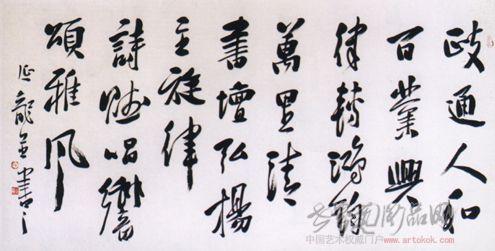 政通人和
百業興
律轉鴻鈞
萬里清
書壇弘揚
主旋律
詩賦唱響
頌雅風
龍
書
中国艺术权威门户 www.artokok.com